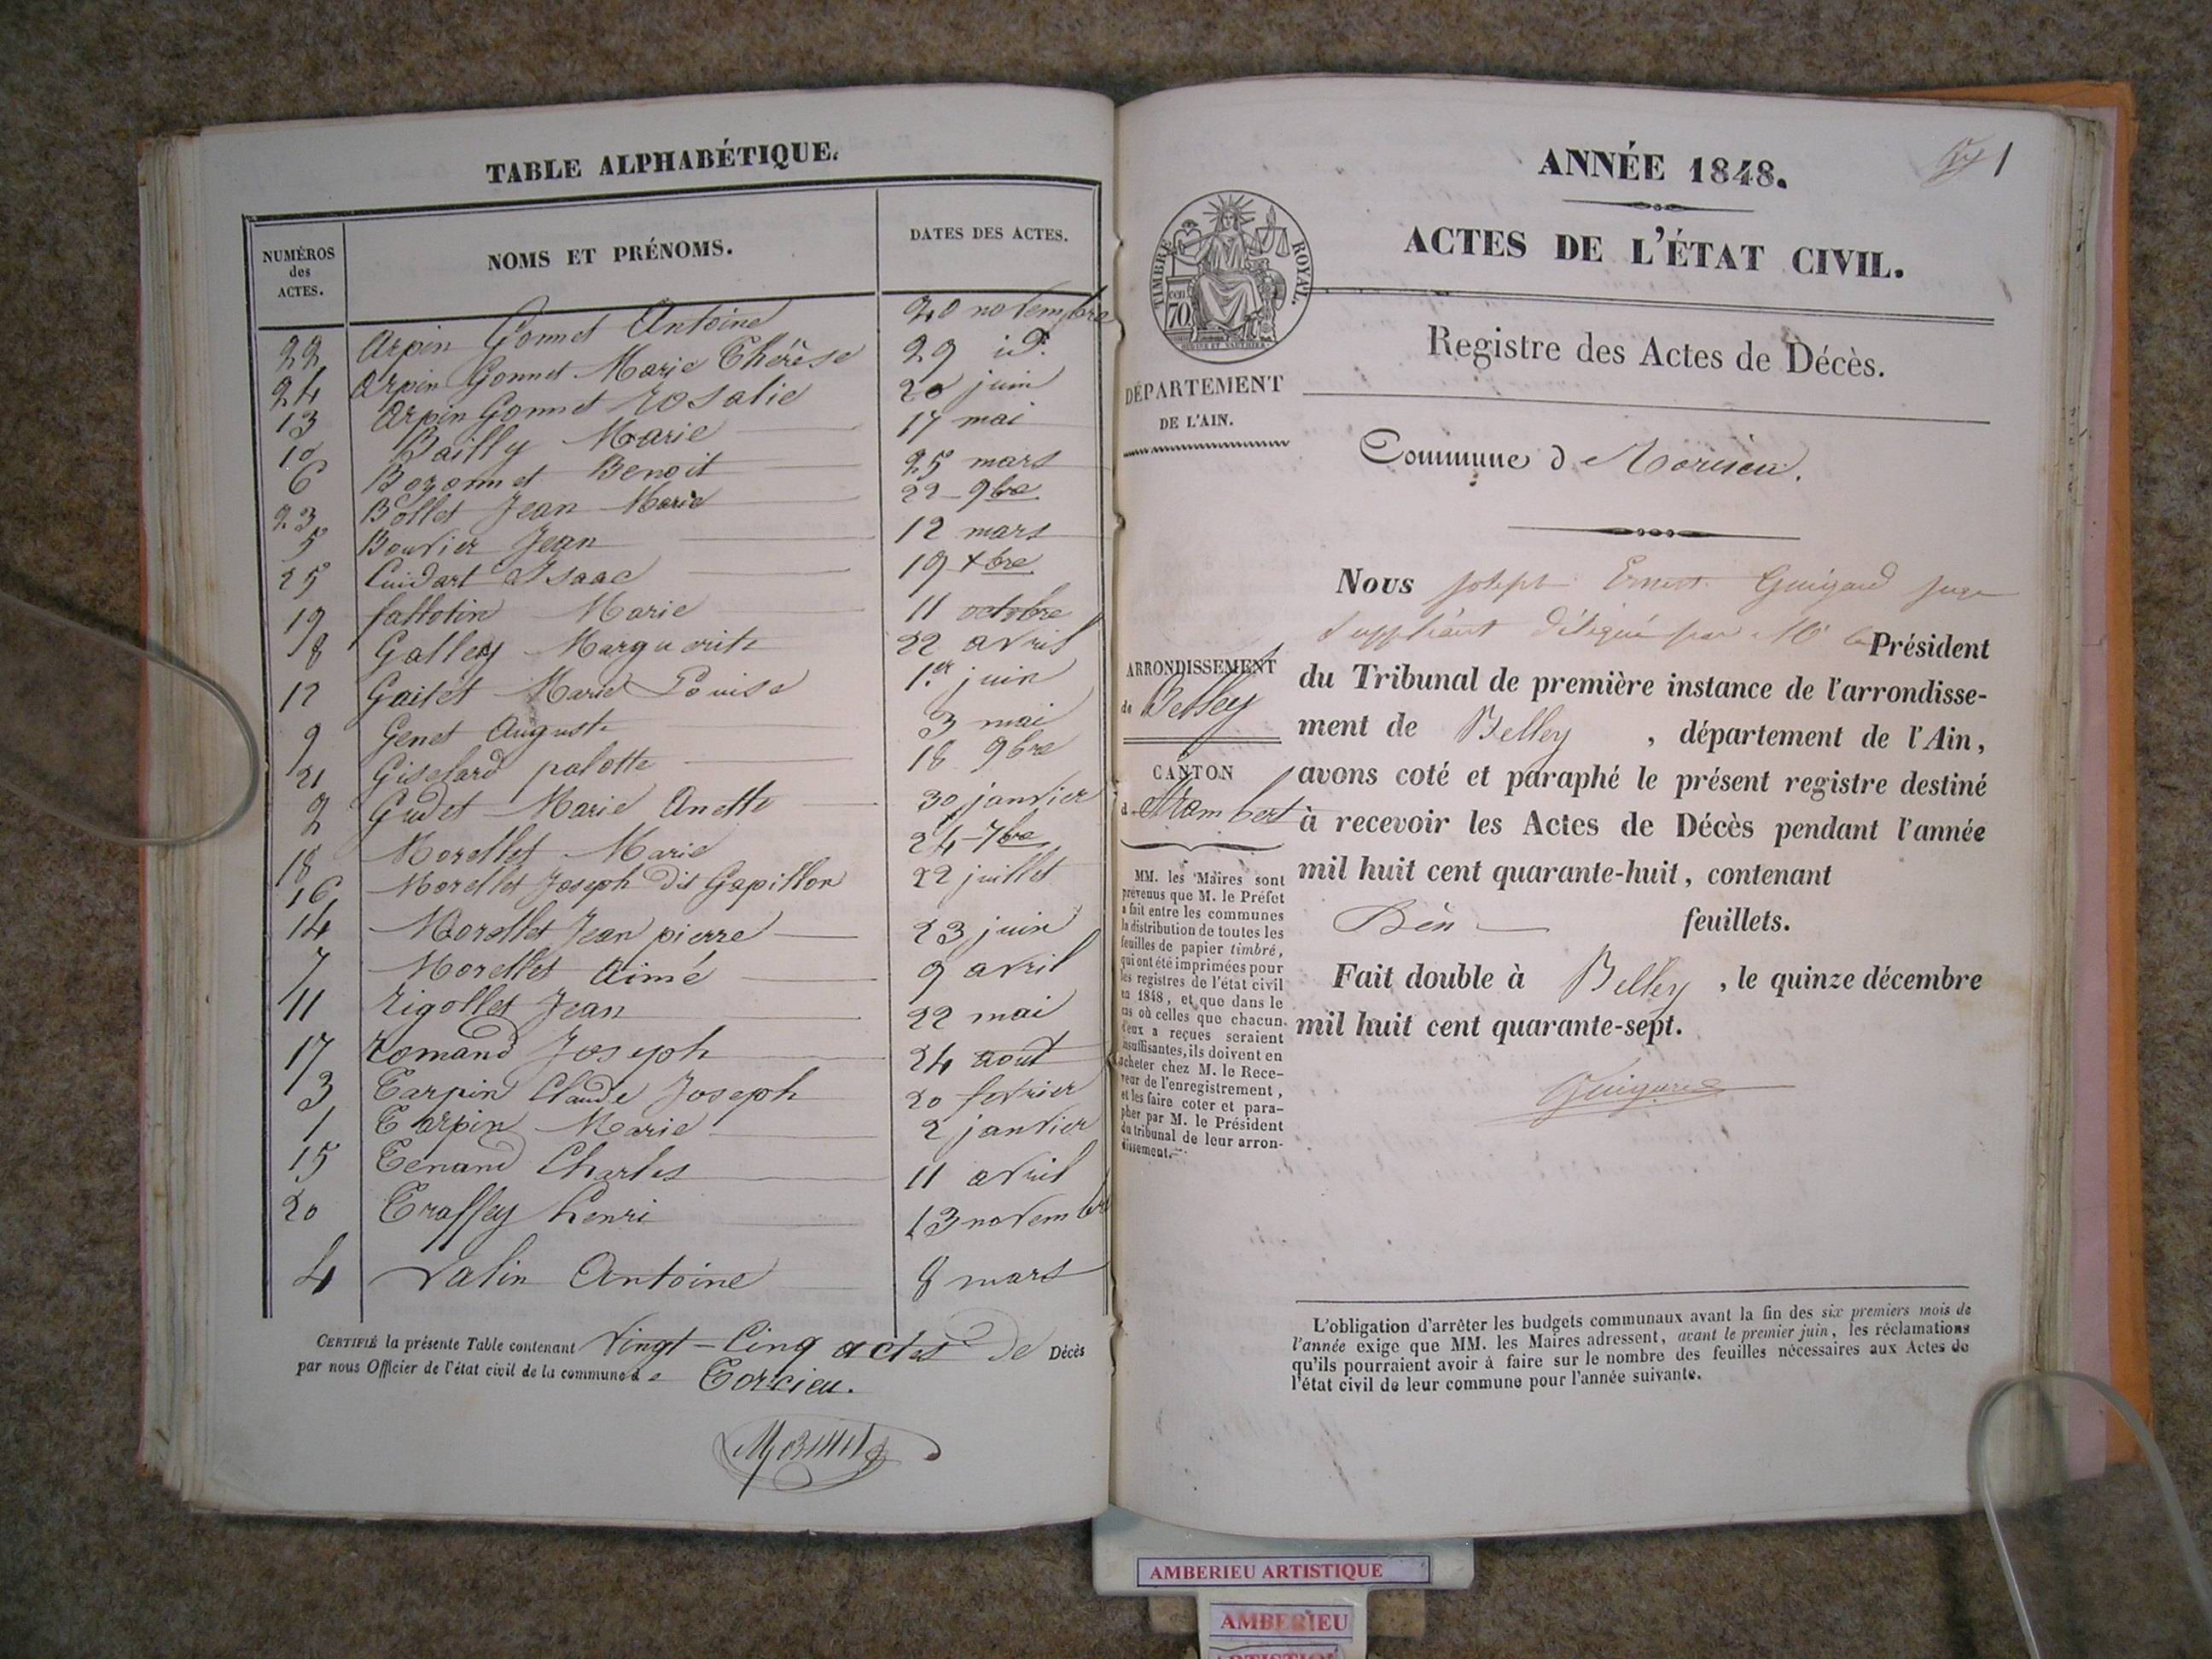 TABLE ALPHABÉTIQUE.
NUMÉROS des ACTES.
NOMS ET PRÉNOMS.
DATES DES ACTES.
22 Arpin Gonnet Antoine 20 novembre
24 Arpin Gonnet Marie Thérèse 29 id.
13 Arpin Gonnet rosalie 20 juin
10 Bailly Marie 17 mai
6 Bozonnet Benoit 25 mars
23 Bollet Jean Marie 22 9bre
5 Bouvier Jean 12 mars
25 Cuidart Isaac 19 xbre
19 fallotin Marie 11 octobre
8 Galley Marguerite 22 avril
12 Gailet Marie Louise 1.er juin
9 Genet Auguste 3 mai
21 Giselard palotte 18 9bre
2 Gudet Marie Anette 30 janvier
18 Morellet Marie 24 7bre
16 Morellet Joseph dit Gapillon 22 juillet
14 Morellet Jean pierre 23 juin
7 Morellet Aimé 9 avril
11 rigollet Jean 22 mai
17 romand Joseph 24 aout
3 Tarpin Claude Joseph 20 fevrier
1 Tarpin Marie 2 janvier
15 Tenand Charles 11 avril
20 Traffey henri 13 novembre
4 Valin Antoine 8 mars
CERTIFIÉ la présente Table contenant Vingt-Cinq actes de Décès
par nous Officier de l'état civil de la commune de Torcieu.
1
ANNÉE 1848.
ACTES DE L'ÉTAT CIVIL.
TIMBRE ROYAL.
CEN. 70
Registre des Actes de Décès.
DÉPARTEMENT
DE L'AIN.
Commune d
Nous joseph Ernest Guigard juge
suppléant délégué par Mr le Président
du Tribunal de première instance de l'arrondisse-
ment de Belley, département de l'Ain,
avons coté et paraphé le présent registre destiné
à recevoir les Actes de Décès pendant l'année
mil huit cent quarante-huit, contenant
feuillets.
Fait double à Belley, le quinze décembre
mil huit cent quarante-sept.
Guigard
ARRONDISSEMENT
de Belley
CANTON
d St Rambert
MM. les Maires sont
prévenus que M. le Préfet
a fait entre les communes
la distribution de toutes les
feuilles de papier timbré,
qui ont été imprimées pour
les registres de l'état civil
en 1848, et que dans le
cas où celles que chacun
d'eux a reçues seraient
insuffisantes, ils doivent en
acheter chez M. le Rece-
veur de l'enregistrement,
et les faire coter et para-
pher par M. le Président
du tribunal de leur arron-
dissement.
L'obligation d'arrêter les budgets communaux avant la fin des six premiers mois de
l'année exige que MM. les Maires adressent, avant le premier juin, les réclamations
qu'ils pourraient avoir à faire sur le nombre des feuilles nécessaires aux Actes de
l'état civil de leur commune pour l'année suivante.
AMBERIEU ARTISTIQUE
AMBERIEU
ARTISTIQUE